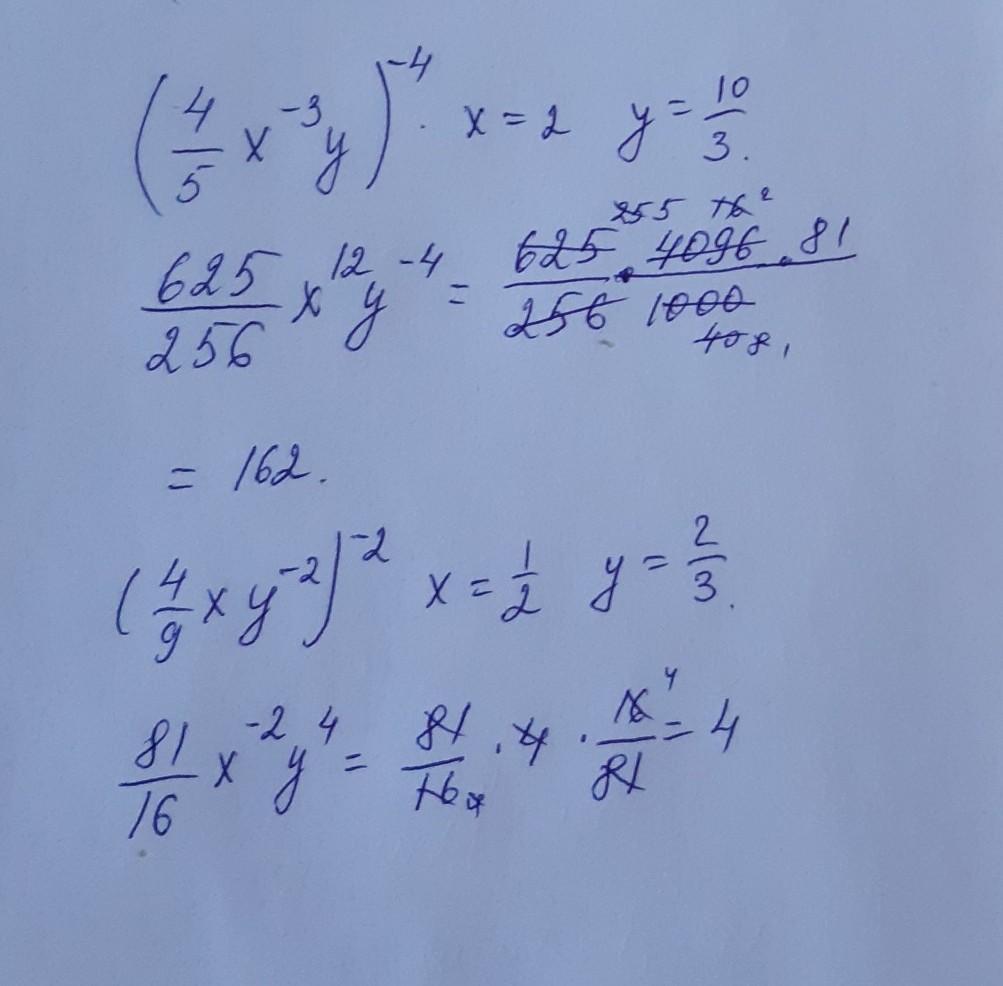 (4/5 x⁻³y)⁻⁴. x = 2 y = 10/3.
625/256 x¹²y⁻⁴ = 625 · 4096 · 81 / 256 1000
= 162.
(4/9 xy⁻²)⁻² x = 1/2 y = 2/3.
81/16 x⁻²y⁴ = 81/16 · 4 · 16/81 = 4